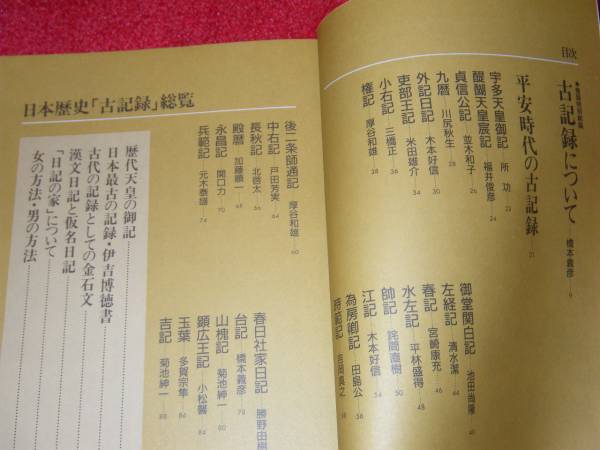 目次
古記録について 橋本義彦 9
平安時代の古記録 21
宇多天皇御記 所功 22
醍醐天皇宸記 福井俊彦 24
貞信公記 並木和子 26
九暦 川尻秋生 28
外記日記 木本好信 30
吏部王記 米田雄介 34
小右記 三橋正 36
権記 厚谷和雄 38
御堂関白記 池田尚隆
左経記 清水潔 44
春記 宮崎康充 46
水左記 平林盛得 48
帥記 詫間直樹 50
江記 木本好信 54
為房卿記 田島公 56
時範記 吉岡眞之 58
後二条師通記 厚谷和雄 60
中右記 戸田芳実 64
長秋記 北啓太 66
殿暦 加藤順一 68
永昌記 関口力 70
兵範記 元木泰雄 74
春日社家日記 勝野由樹
台記 橋本義彦 78
山槐記 菊池紳一 80
顕広王記 小松馨 84
玉葉 多賀宗隼 86
吉記 菊池紳一 88
日本歴史「古記録」総覧
歴代天皇の御記
日本最古の記録・伊吉博徳書
古代の記録としての金石文
漢文日記と仮名日記
「日記の家」について
女の方法・男の方法